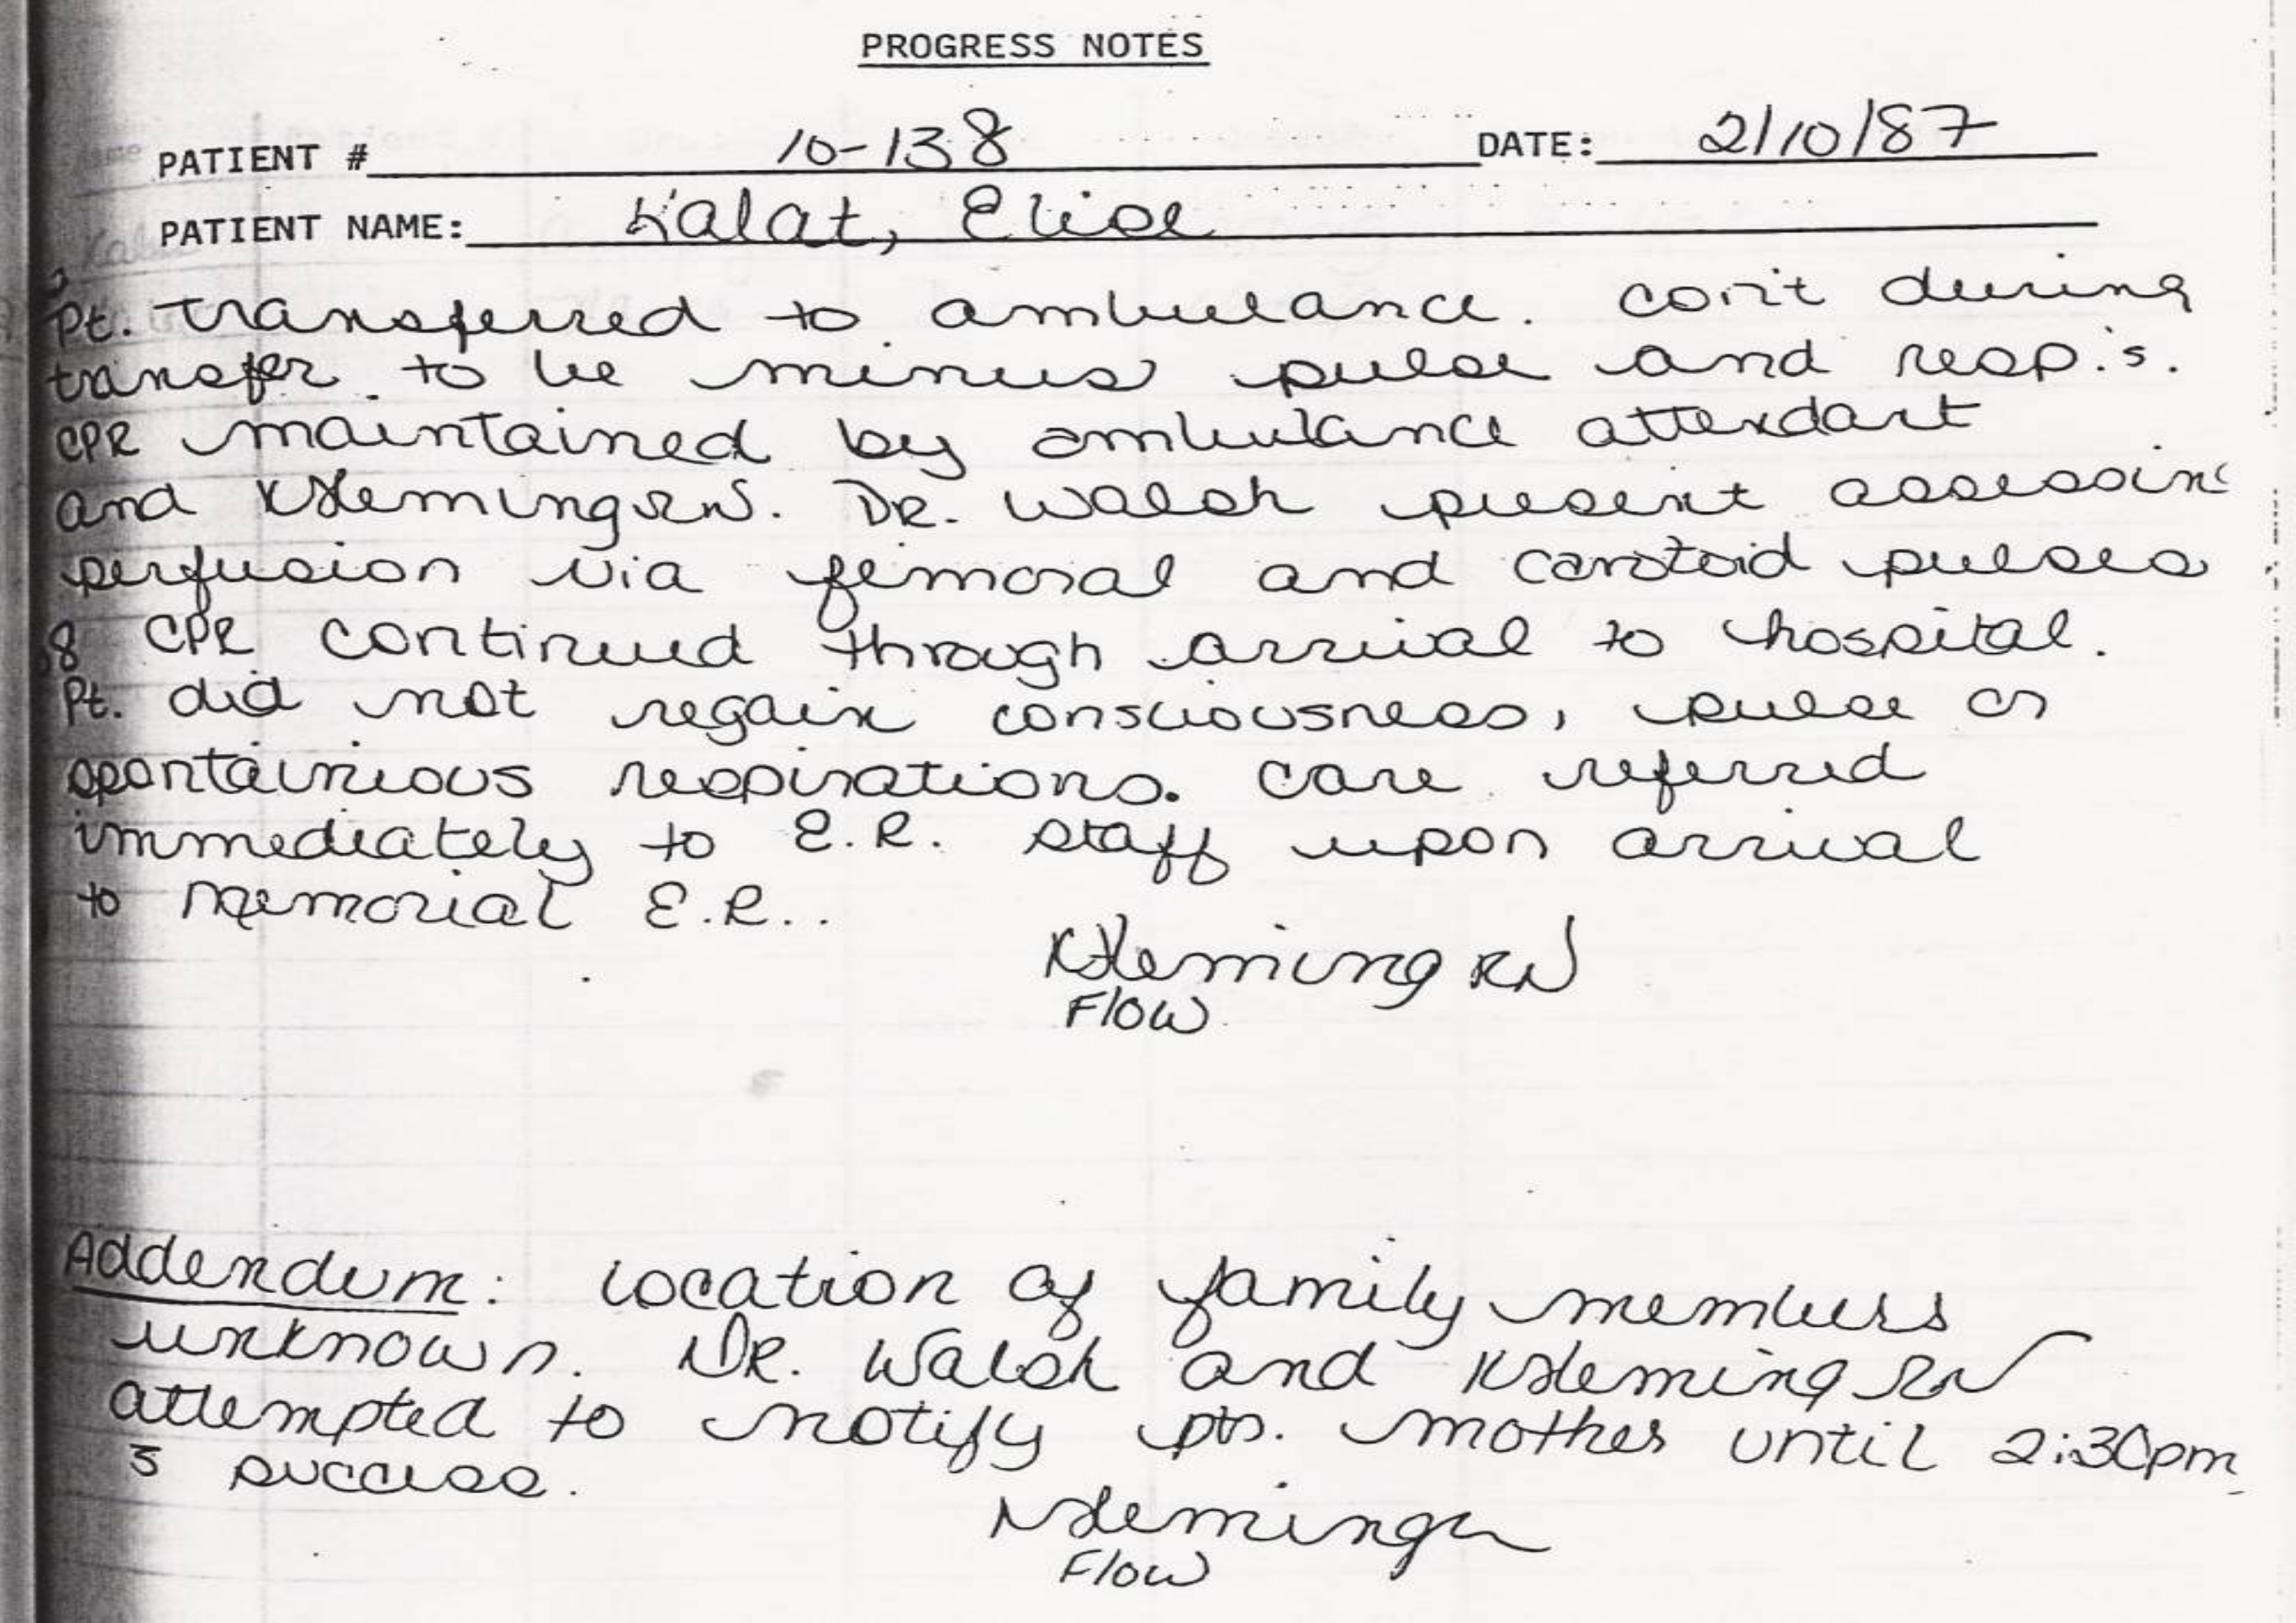 PROGRESS NOTES
PATIENT # 10-138 DATE: 2/10/87
PATIENT NAME: Kalat, Elise
Pt. transferred to ambulance. con't during
transfer to be minus pulse and resp.'s.
CPR maintained by ambulance attendant
and KFleming RN. DR. Walsh present assessing
perfusion via femoral and carotoid pulses
CPR continued through arrival to hospital.
Pt. did not regain consciousness, pulse or
spontainious respirations. Care referred
immediately to E.R. staff upon arrival
to Memorial E.R..
KFleming RN
Flow
Addendum: location of family members
unknown. DR. Walsh and KFleming RN
attempted to notify pts. mother until 2:30pm
s̄ success.
KFleming
Flow